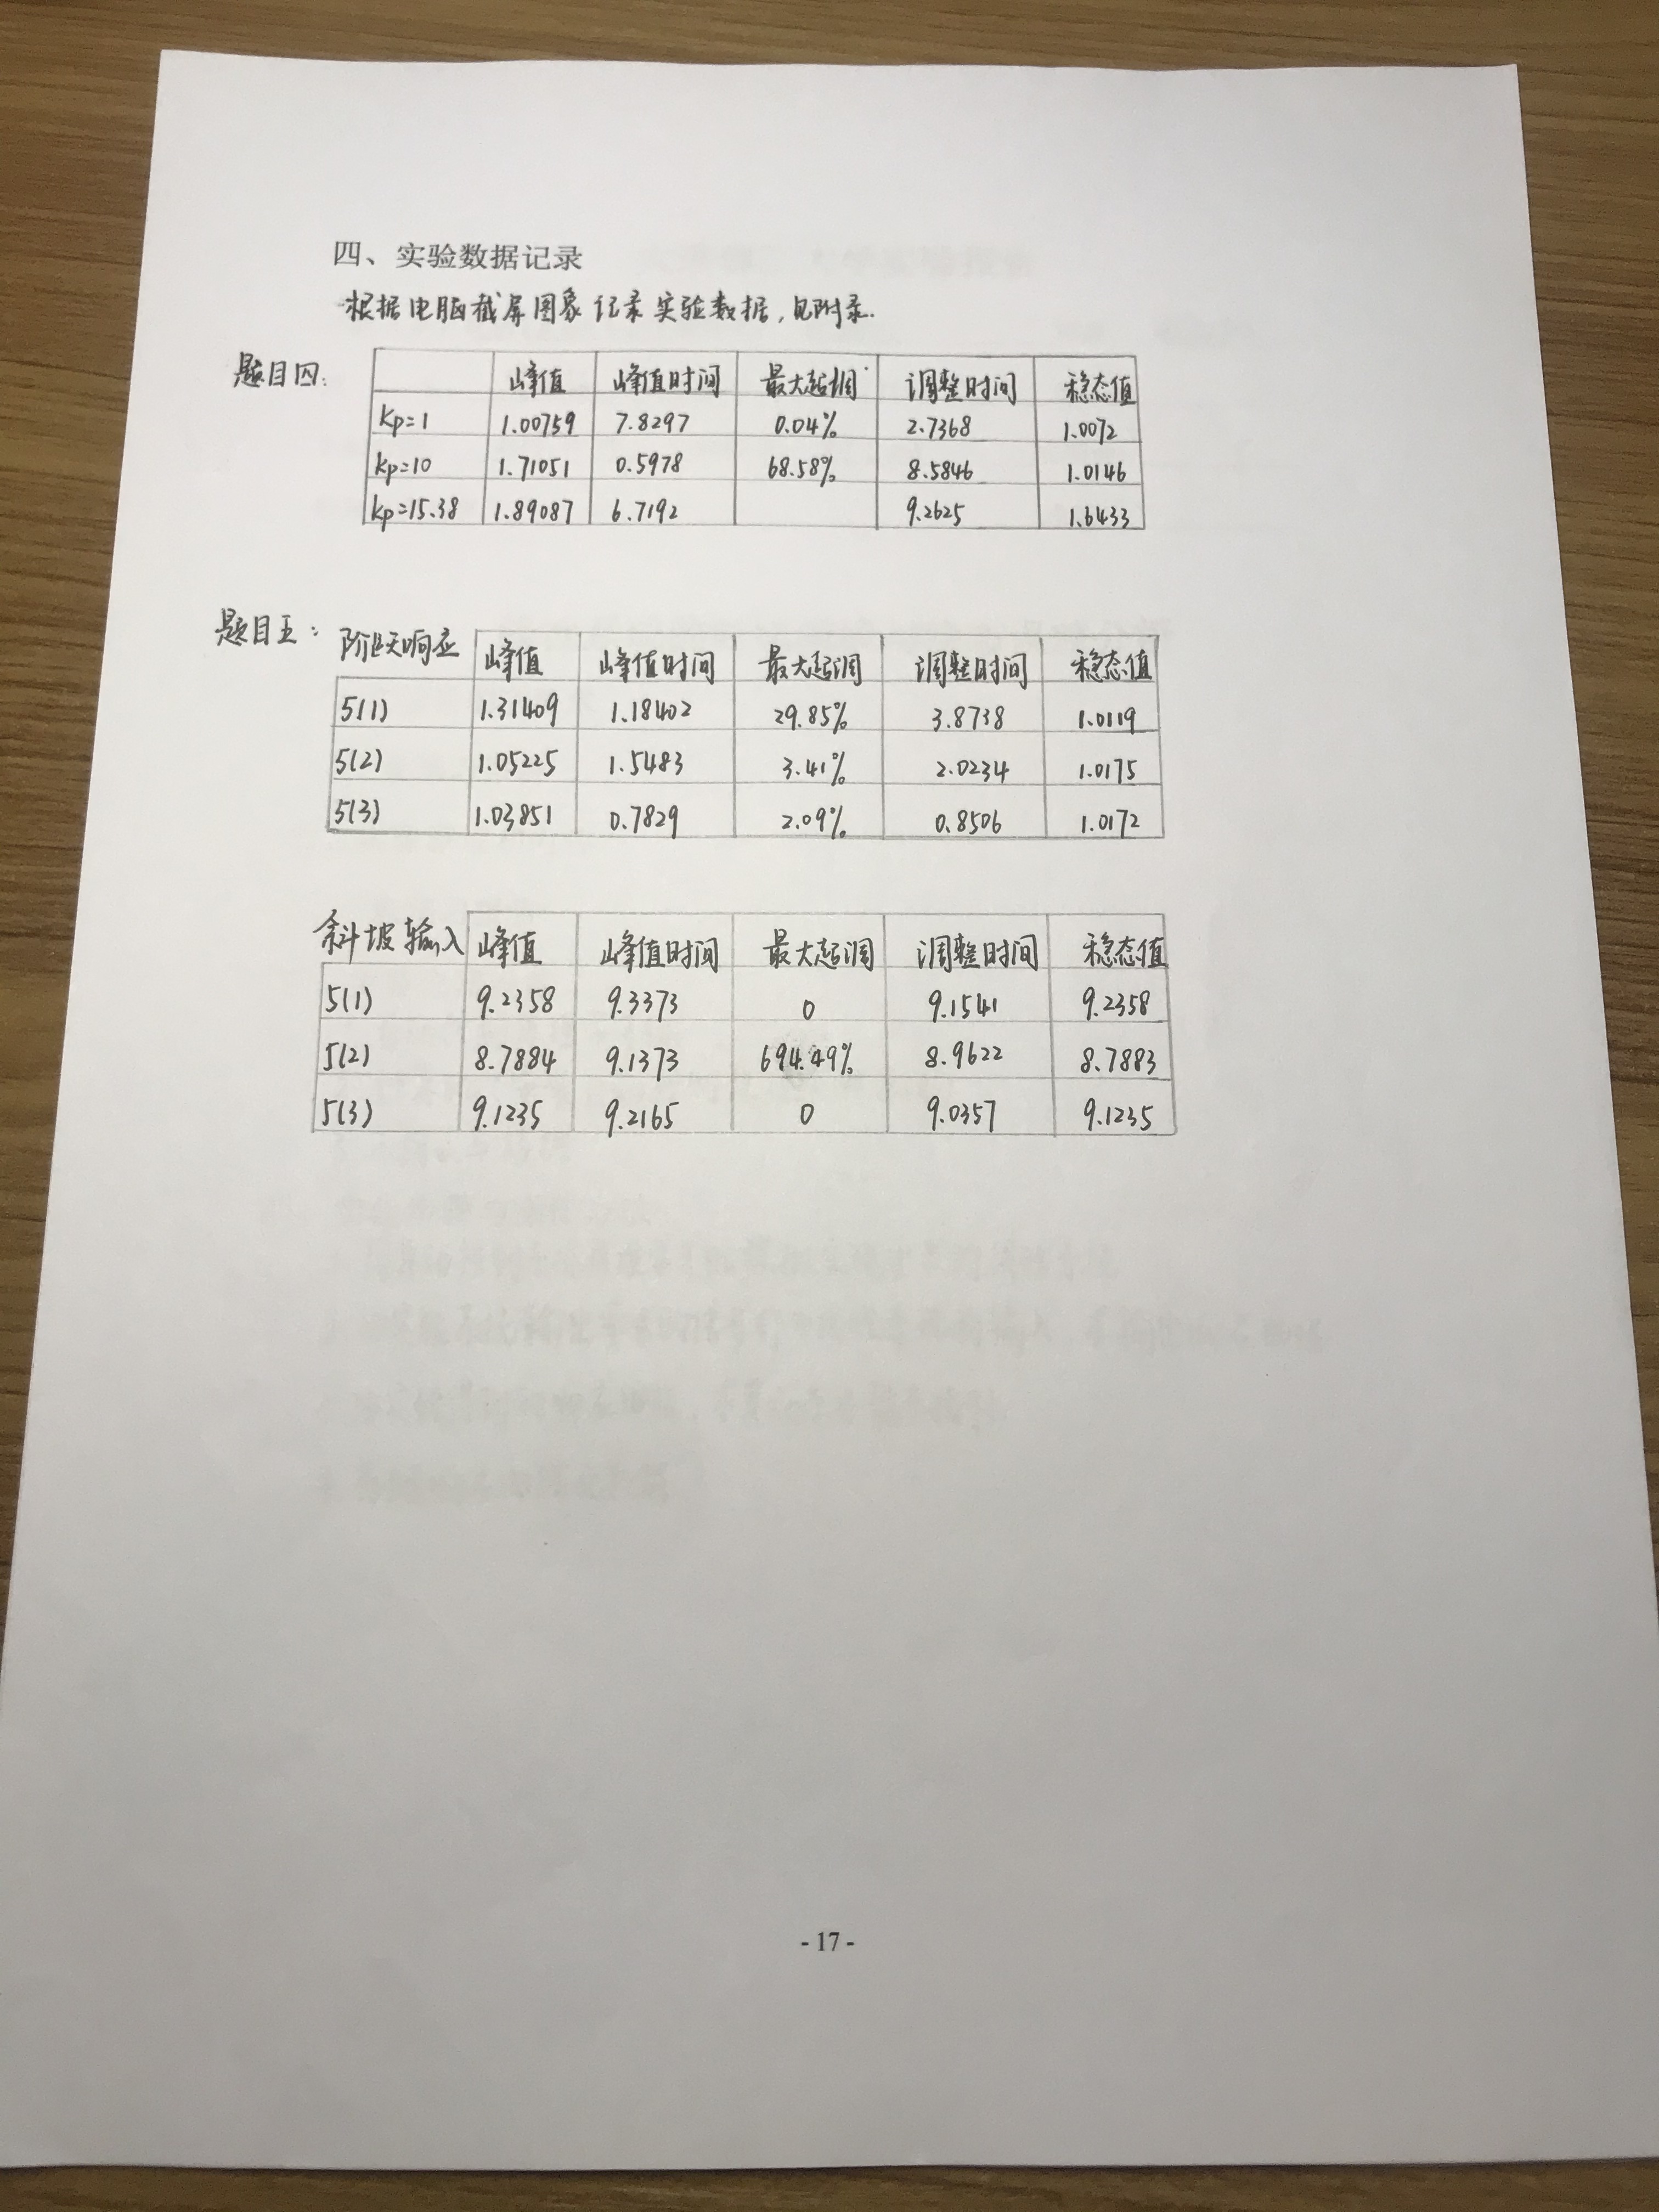 四、实验数据记录
根据电脑截屏图象记录实验数据,见附录.
题目四:
峰值 峰值时间 最大超调 调整时间 稳态值
Kp=1 1.00759 7.8297 0.04% 2.7368 1.0072
kp=10 1.71051 0.5978 68.58% 8.5846 1.0146
kp=15.38 1.89087 6.7192 9.2625 1.6433
题目五:
阶跃响应 峰值 峰值时间 最大超调 调整时间 稳态值
5(1) 1.31409 1.18402 29.85% 3.8738 1.0119
5(2) 1.05225 1.5483 3.41% 2.0234 1.0175
5(3) 1.03851 0.7829 2.09% 0.8506 1.0172
斜坡输入 峰值 峰值时间 最大超调 调整时间 稳态值
5(1) 9.2358 9.3373 0 9.1541 9.2358
5(2) 8.7884 9.1373 694.49% 8.9622 8.7883
5(3) 9.1235 9.2165 0 9.0357 9.1235
- 17 -